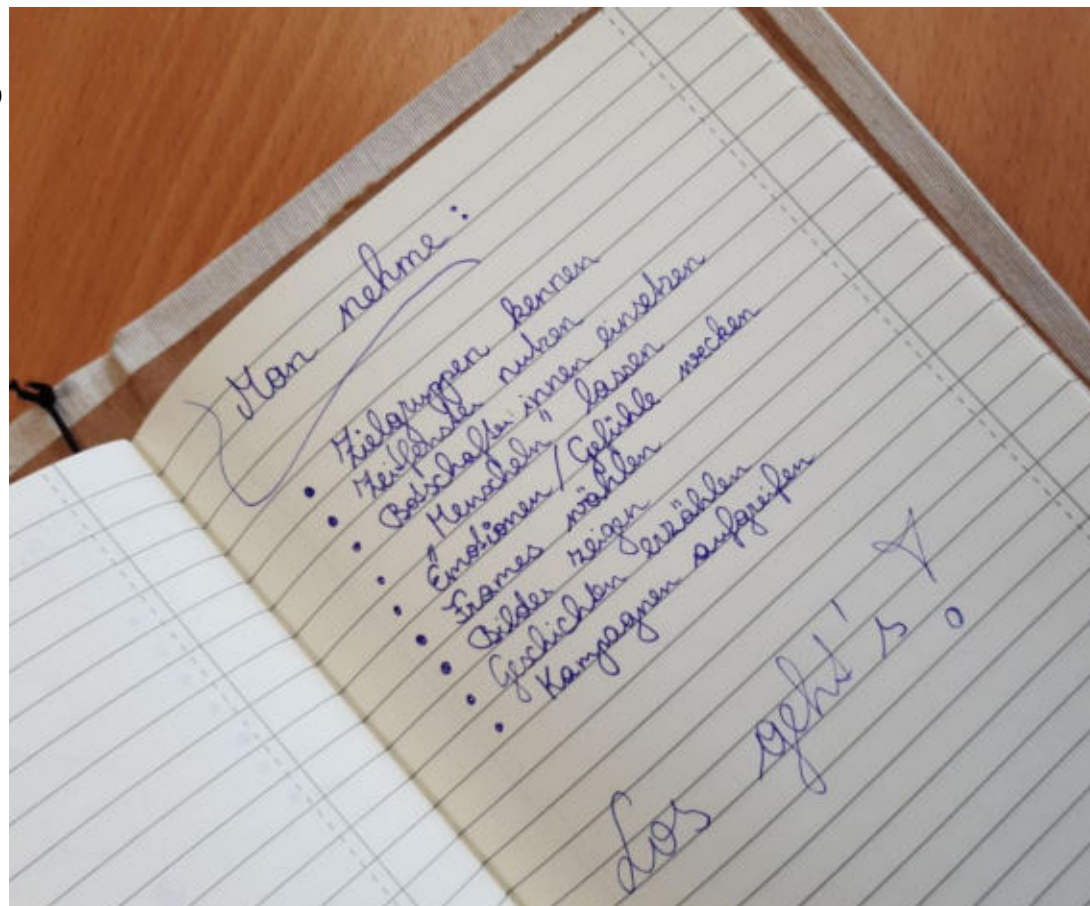 Man nehme:
• Zielgruppen kennen
• Zeitfenster nutzen
• Botschafter:innen einsetzen
• "Menscheln" lassen
• Emotionen/Gefühle wecken
• Frames wählen
• Bilder zeigen
• Geschichten erzählen
• Kampagnen aufgreifen
Los geht's!